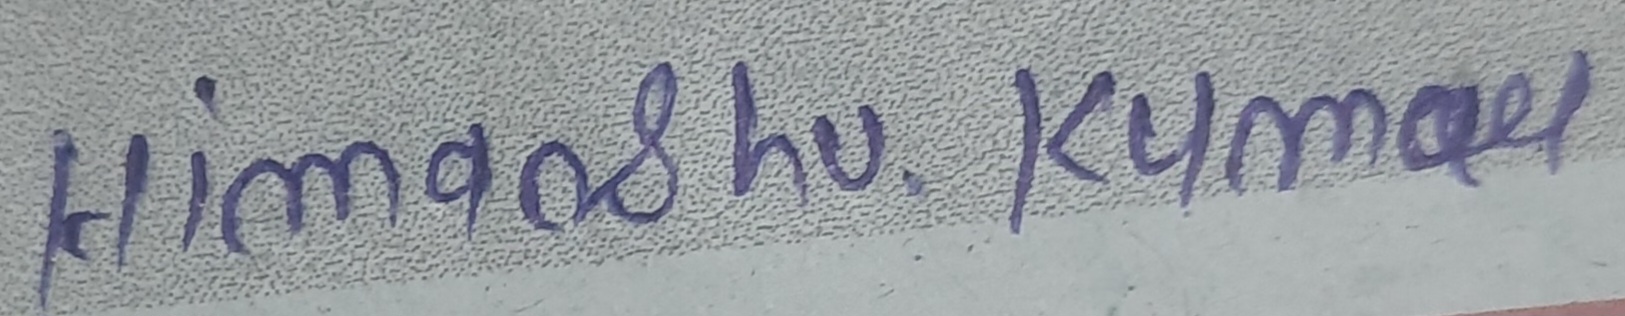 Himanshu. Kumar